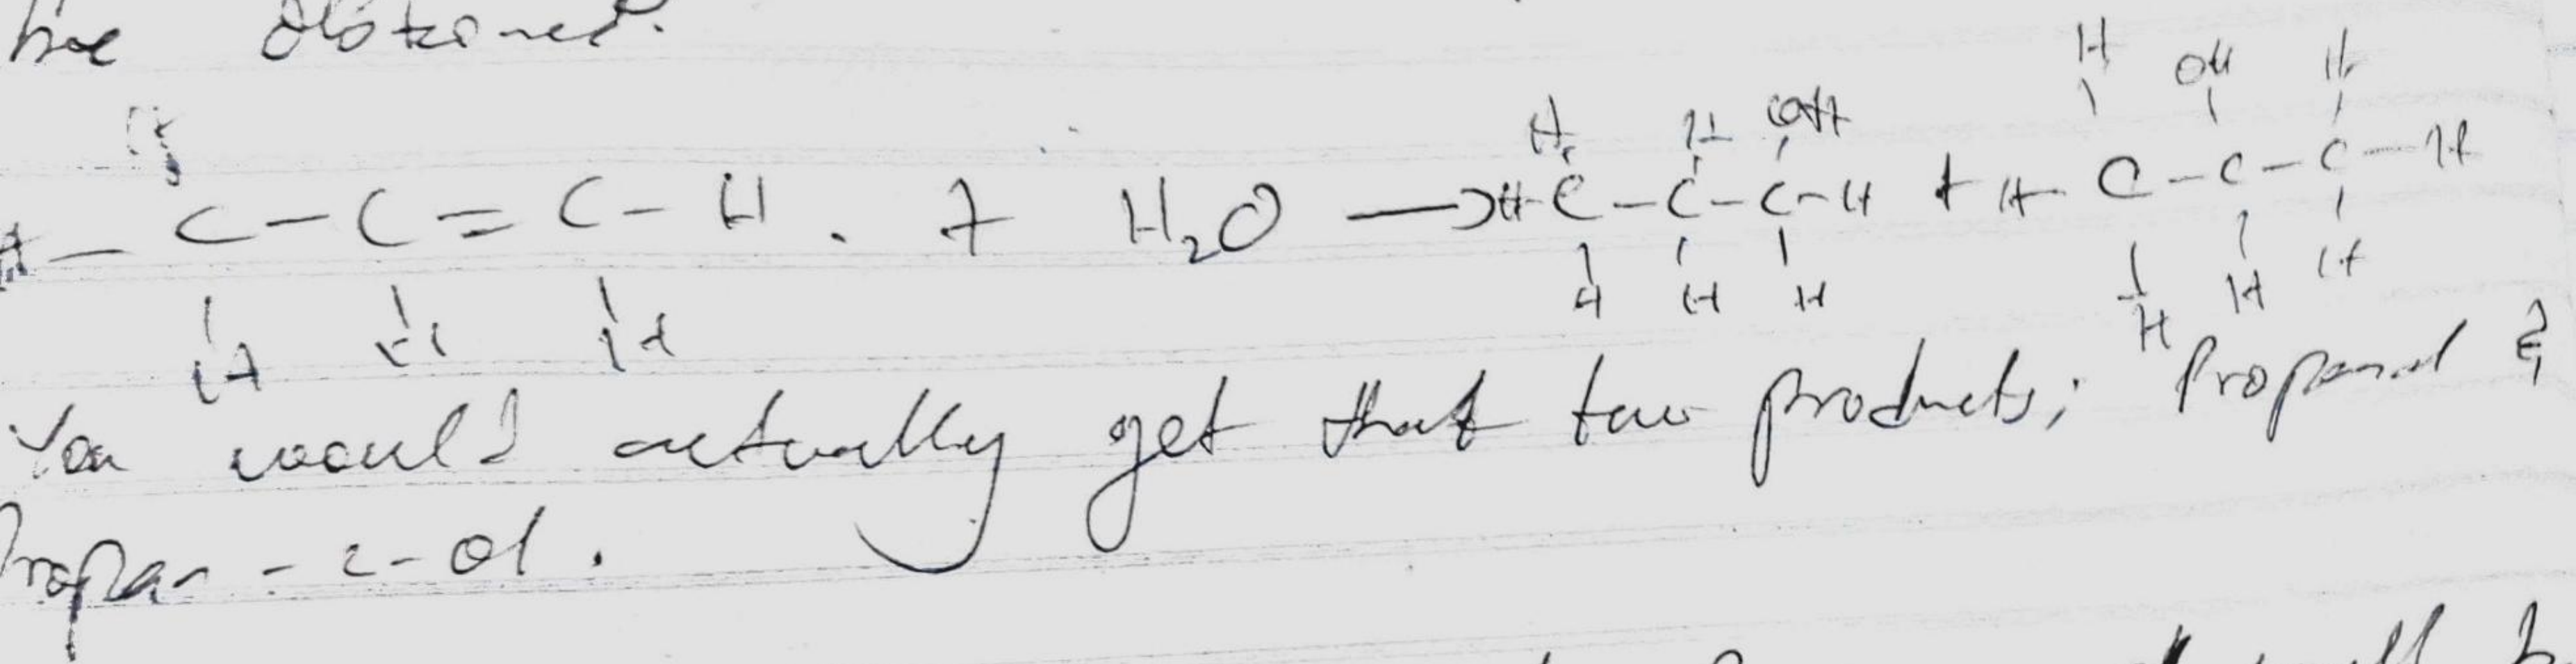 be obtained.
H
H - C - C = C - H . + H₂O → H - C - C - C - H + H - C - C - C - H
H H H
H H OH
H H H
H OH H
H H H
You would actually get that two products; Propanol &
Propan - 2 - ol .